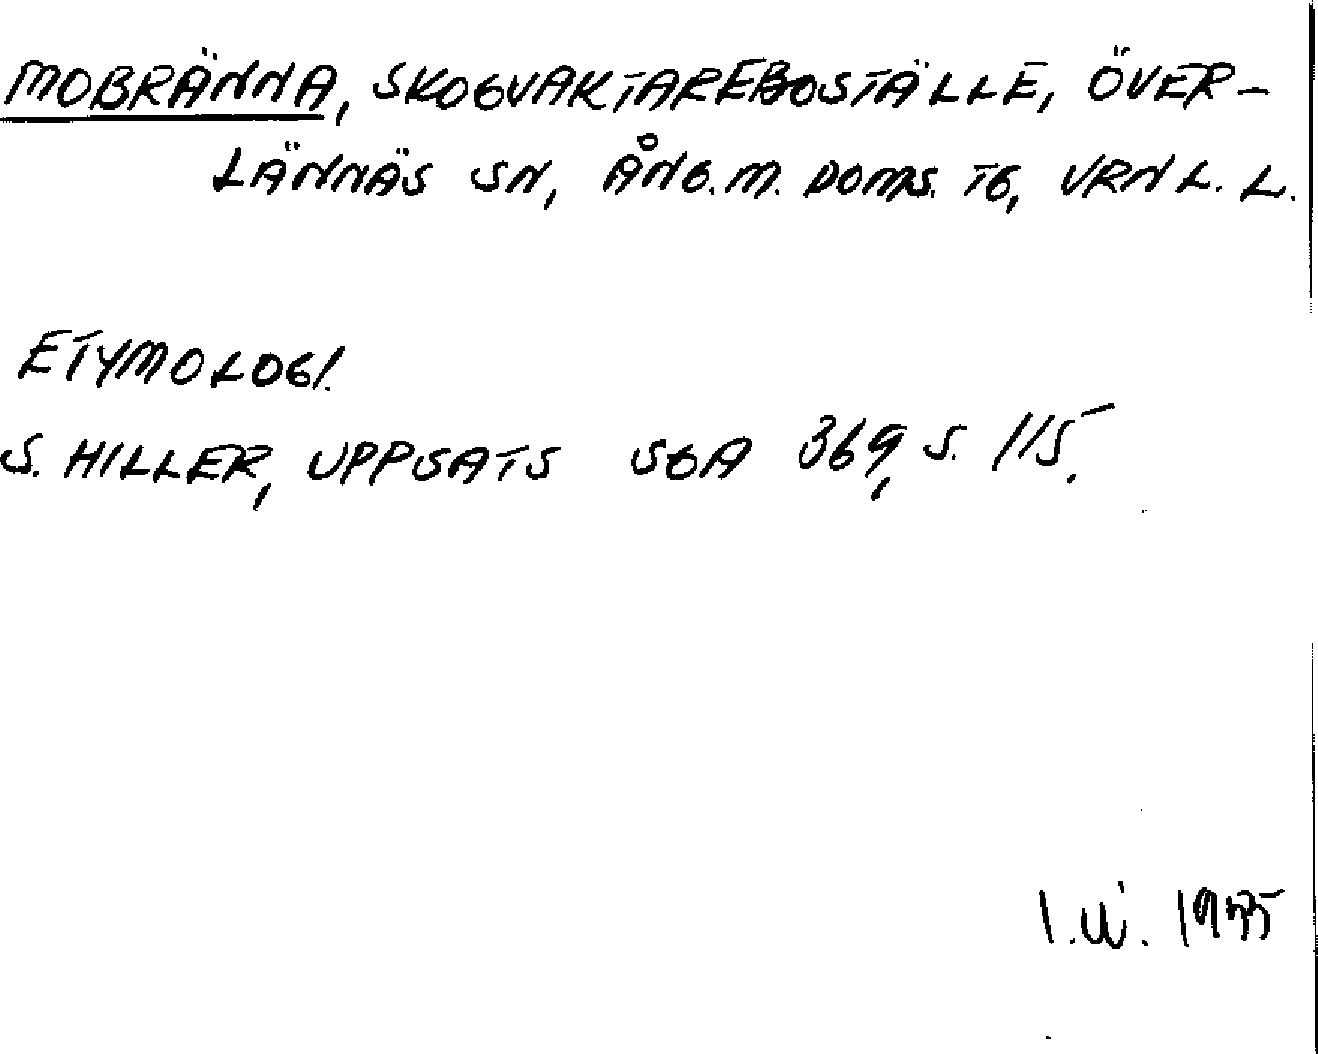 MOBRÄNNA, SKOGVAKTAREBOSTÄLLE, ÖVER-
LÄNNÄS SN, ÅNG.M. DOMS. TG, VRNL. L.
ETYMOLOGI.
S. HILLER, UPPSATS SGA 369, S. 115.
I.W. 1975